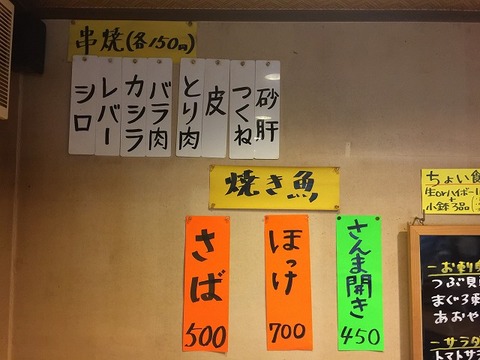 串焼(各150円)
砂肝
つくね
皮
とり肉
バラ肉
カシラ
レバー
シロ
焼き魚
さんま開き
450
ほっけ
700
さば
500
ちょい飲
生orハイボール
+
小鉢3品
お刺
つぶ貝
まぐろ
あおや
サラダ
トマトサ